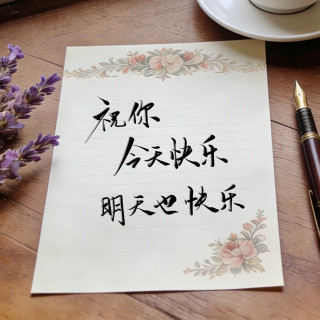 祝你
今天快乐
明天也快乐